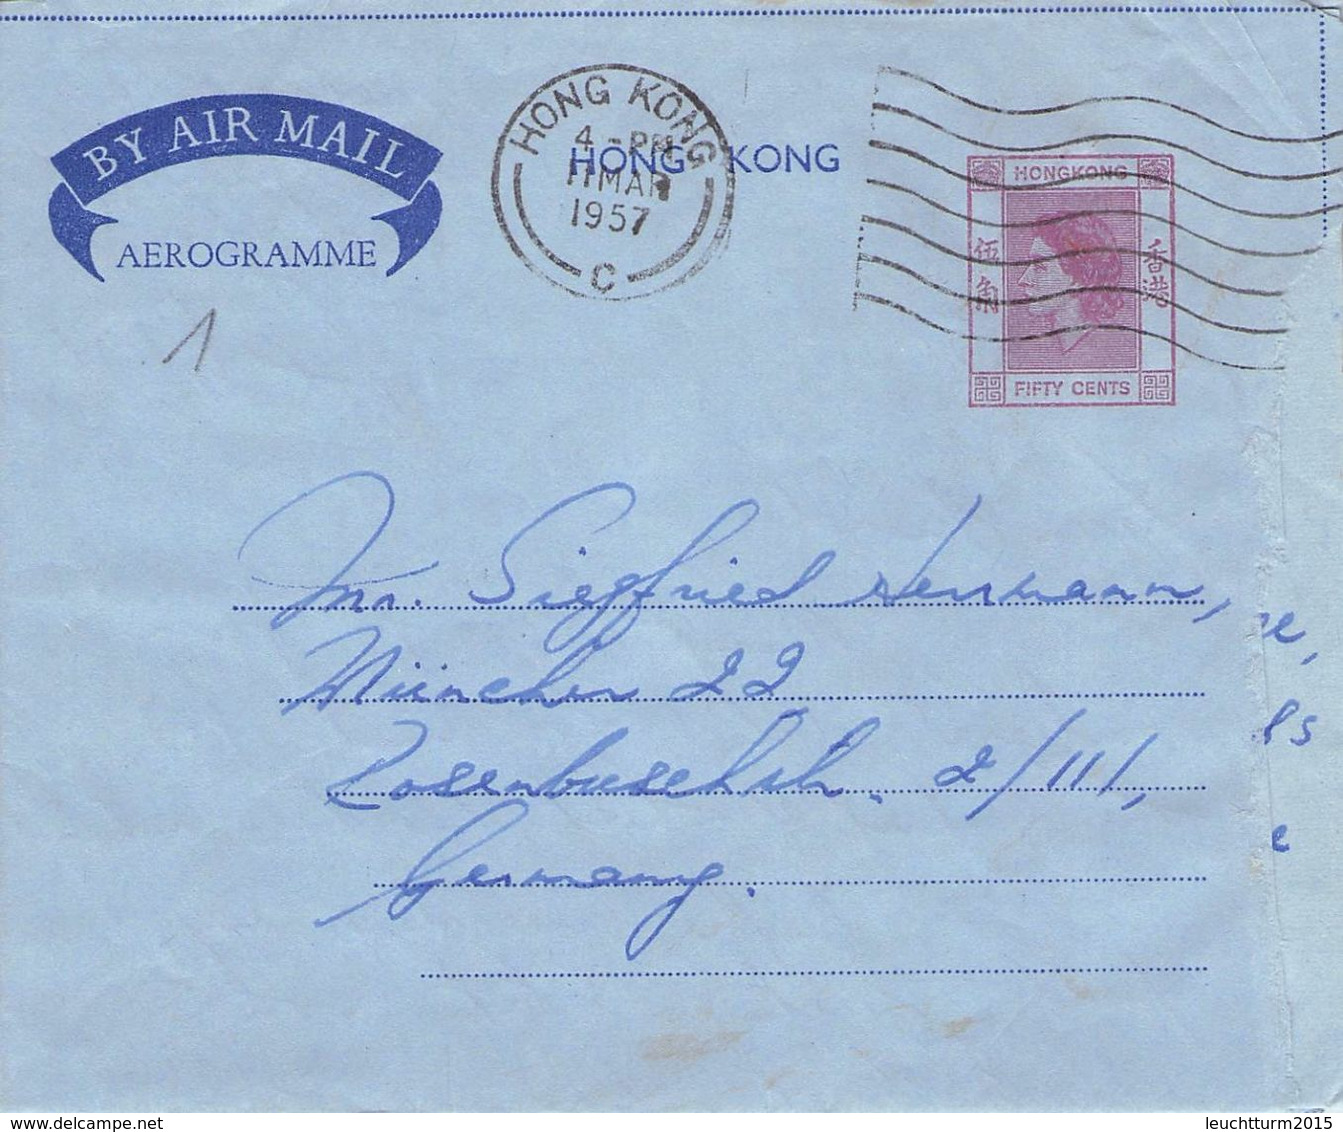 BY AIR MAIL
AEROGRAMME
HONG KONG
4 - PM
11 MAR
1957
C
HONG KONG
HONGKONG
伍角
香港
FIFTY CENTS
1
Mr. Siegfried Herrmann,
München 22
Rosenbuschstr. 2/III,
Germany.
e,
ls
e
www.delcampe.net
leuchtturm2015